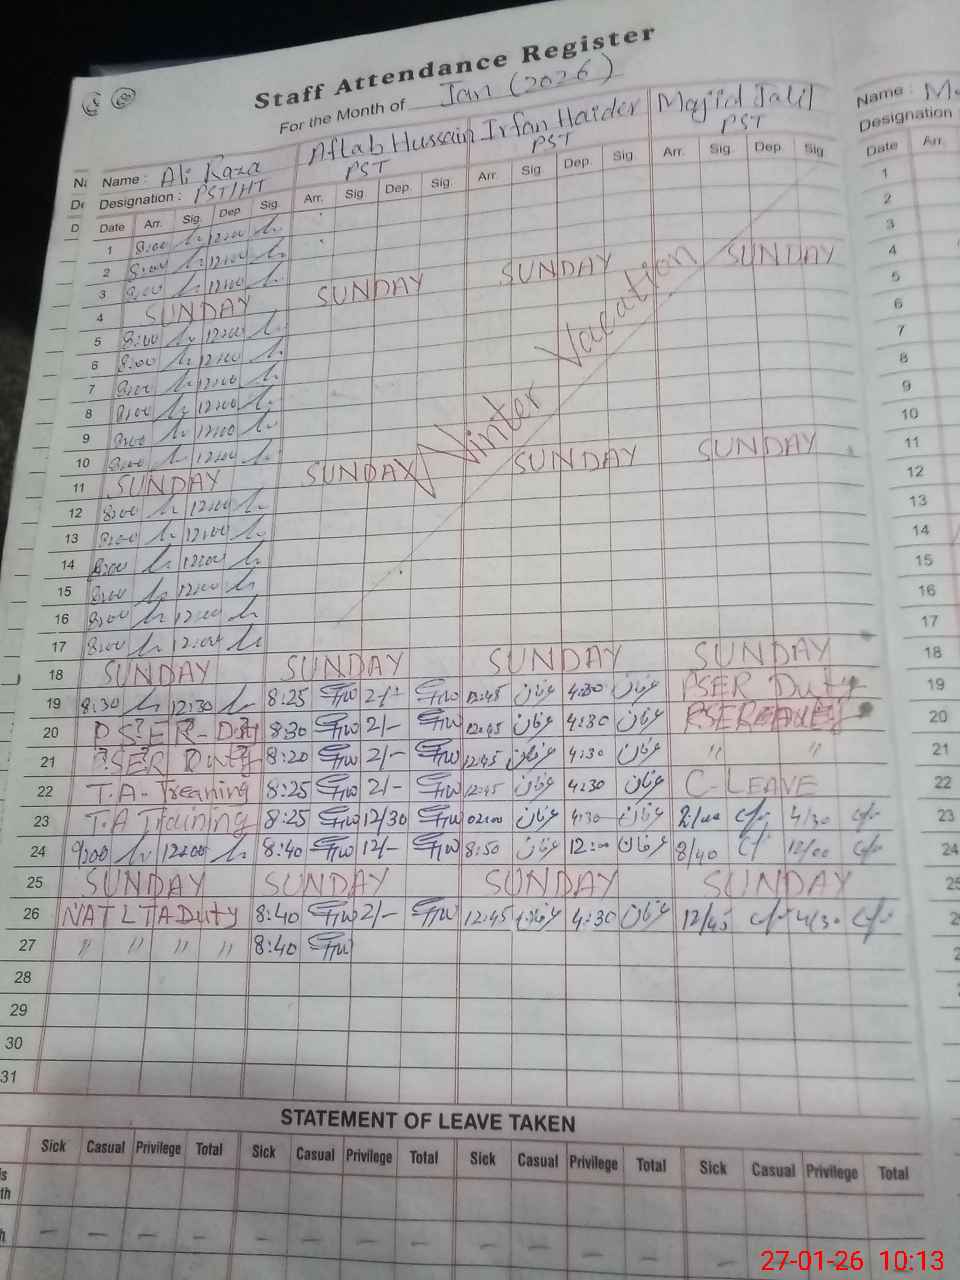 Staff Attendance Register
For the Month of Jan (2026)
Name : Ali Raza Aftab Hussain Irfan Haider Majid Jalil
Designation : PST/HT PST PST PST
Date Arr. Sig. Dep. Sig. Arr. Sig. Dep. Sig. Arr. Sig. Dep. Sig. Arr. Sig. Dep. Sig.
1 8:00 12:00
2 8:00 12:00
3 8:00 12:00
4 SUNDAY SUNDAY SUNDAY SUNDAY
5 8:00 12:00
6 8:00 12:00
7 8:00 12:00
8 8:00 12:00
9 8:00 12:00
10 8:00 12:00
Winter Vacation
11 SUNDAY SUNDAY SUNDAY SUNDAY
12 8:00 12:00
13 8:00 12:00
14 8:00 12:00
15 8:00 12:00
16 8:00 12:00
17 8:00 12:00
18 SUNDAY SUNDAY SUNDAY SUNDAY
19 8:30 12:30 8:25 2/- 12:45 عرفان 4:30 عرفان PSER Duty
20 PSER-Duty 8:30 2/- 12:45 عرفان 4:30 عرفان
21 PSER Duty 8:20 2/- 12:45 عرفان 4:30 عرفان " "
22 T.A-Treaning 8:25 2/- 12:45 عرفان 4:30 عرفان C-LEAVE
23 T.A Training 8:25 12/30 02:00 عرفان 4:30 عرفان 2:/00 4/30
24 9:00 12:00 8:40 12/- 8:50 عرفان 12:00 عرفان 8/40 12/00
25 SUNDAY SUNDAY SUNDAY SUNDAY
26 NAT LTA Duty 8:40 2/- 12:45 عرفان 4:30 عرفان 12/45 4/30
27 " " " " 8:40
28
29
30
31
STATEMENT OF LEAVE TAKEN
Sick Casual Privilege Total Sick Casual Privilege Total Sick Casual Privilege Total Sick Casual Privilege Total
Name :
Designation
Date Arr.
1
2
3
4
5
6
7
8
9
10
11
12
13
14
15
16
17
18
19
20
21
22
23
24
27-01-26 10:13